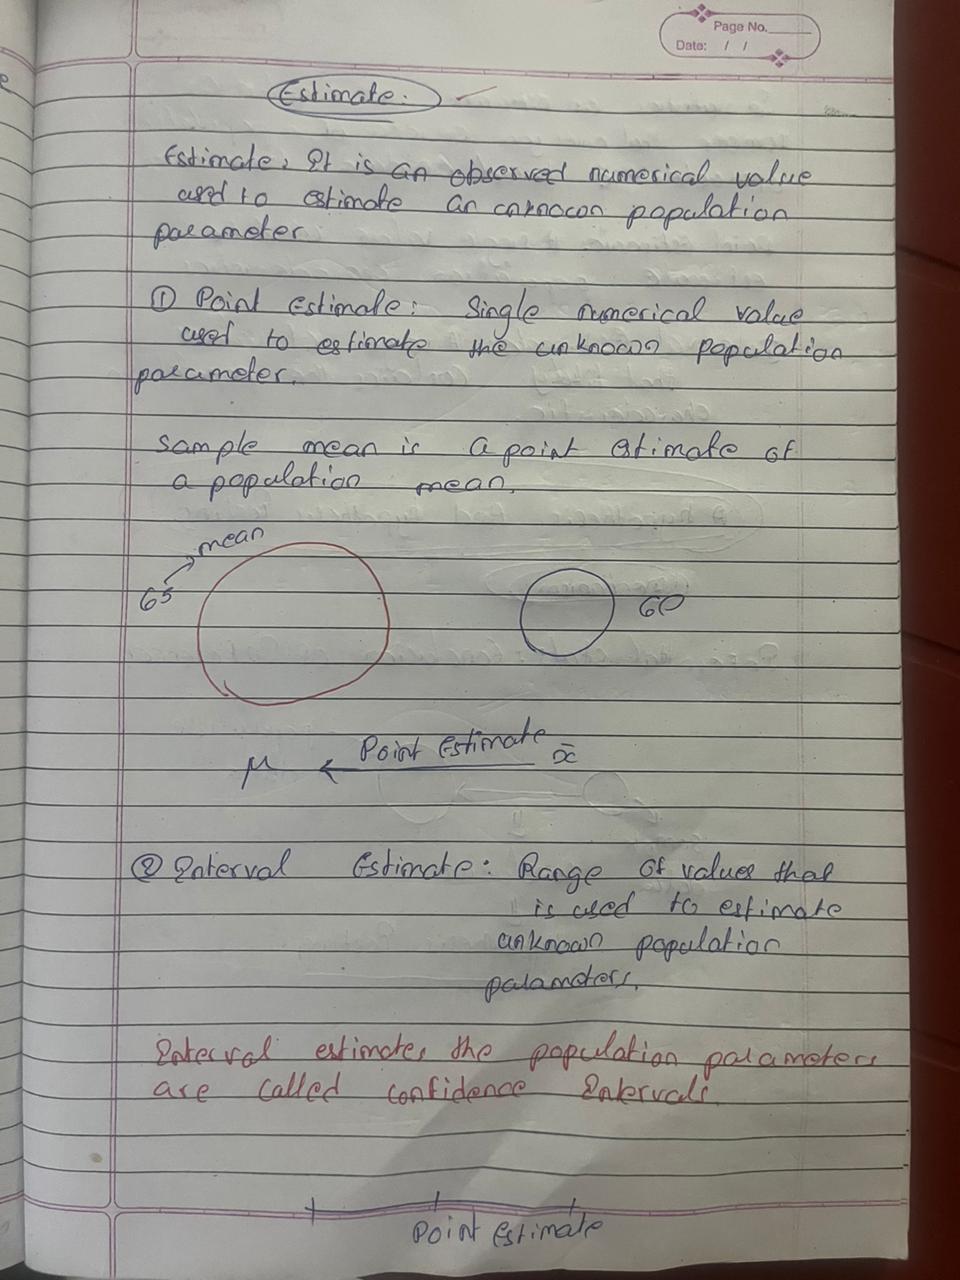 Page No.
Date: / /
Estimate.
Estimate: It is an observed numerical value
used to estimate an unknown population
parameter
① Point Estimate: Single numerical value
used to estimate the unknown population
parameter.
Sample mean is a point estimate of
a population mean.
mean
65
60
Point Estimate
μ ← x̄
② Interval Estimate: Range of values that
is used to estimate
unknown population
parameters.
Interval estimates the population parameters
are called confidence Intervals.
Point Estimate